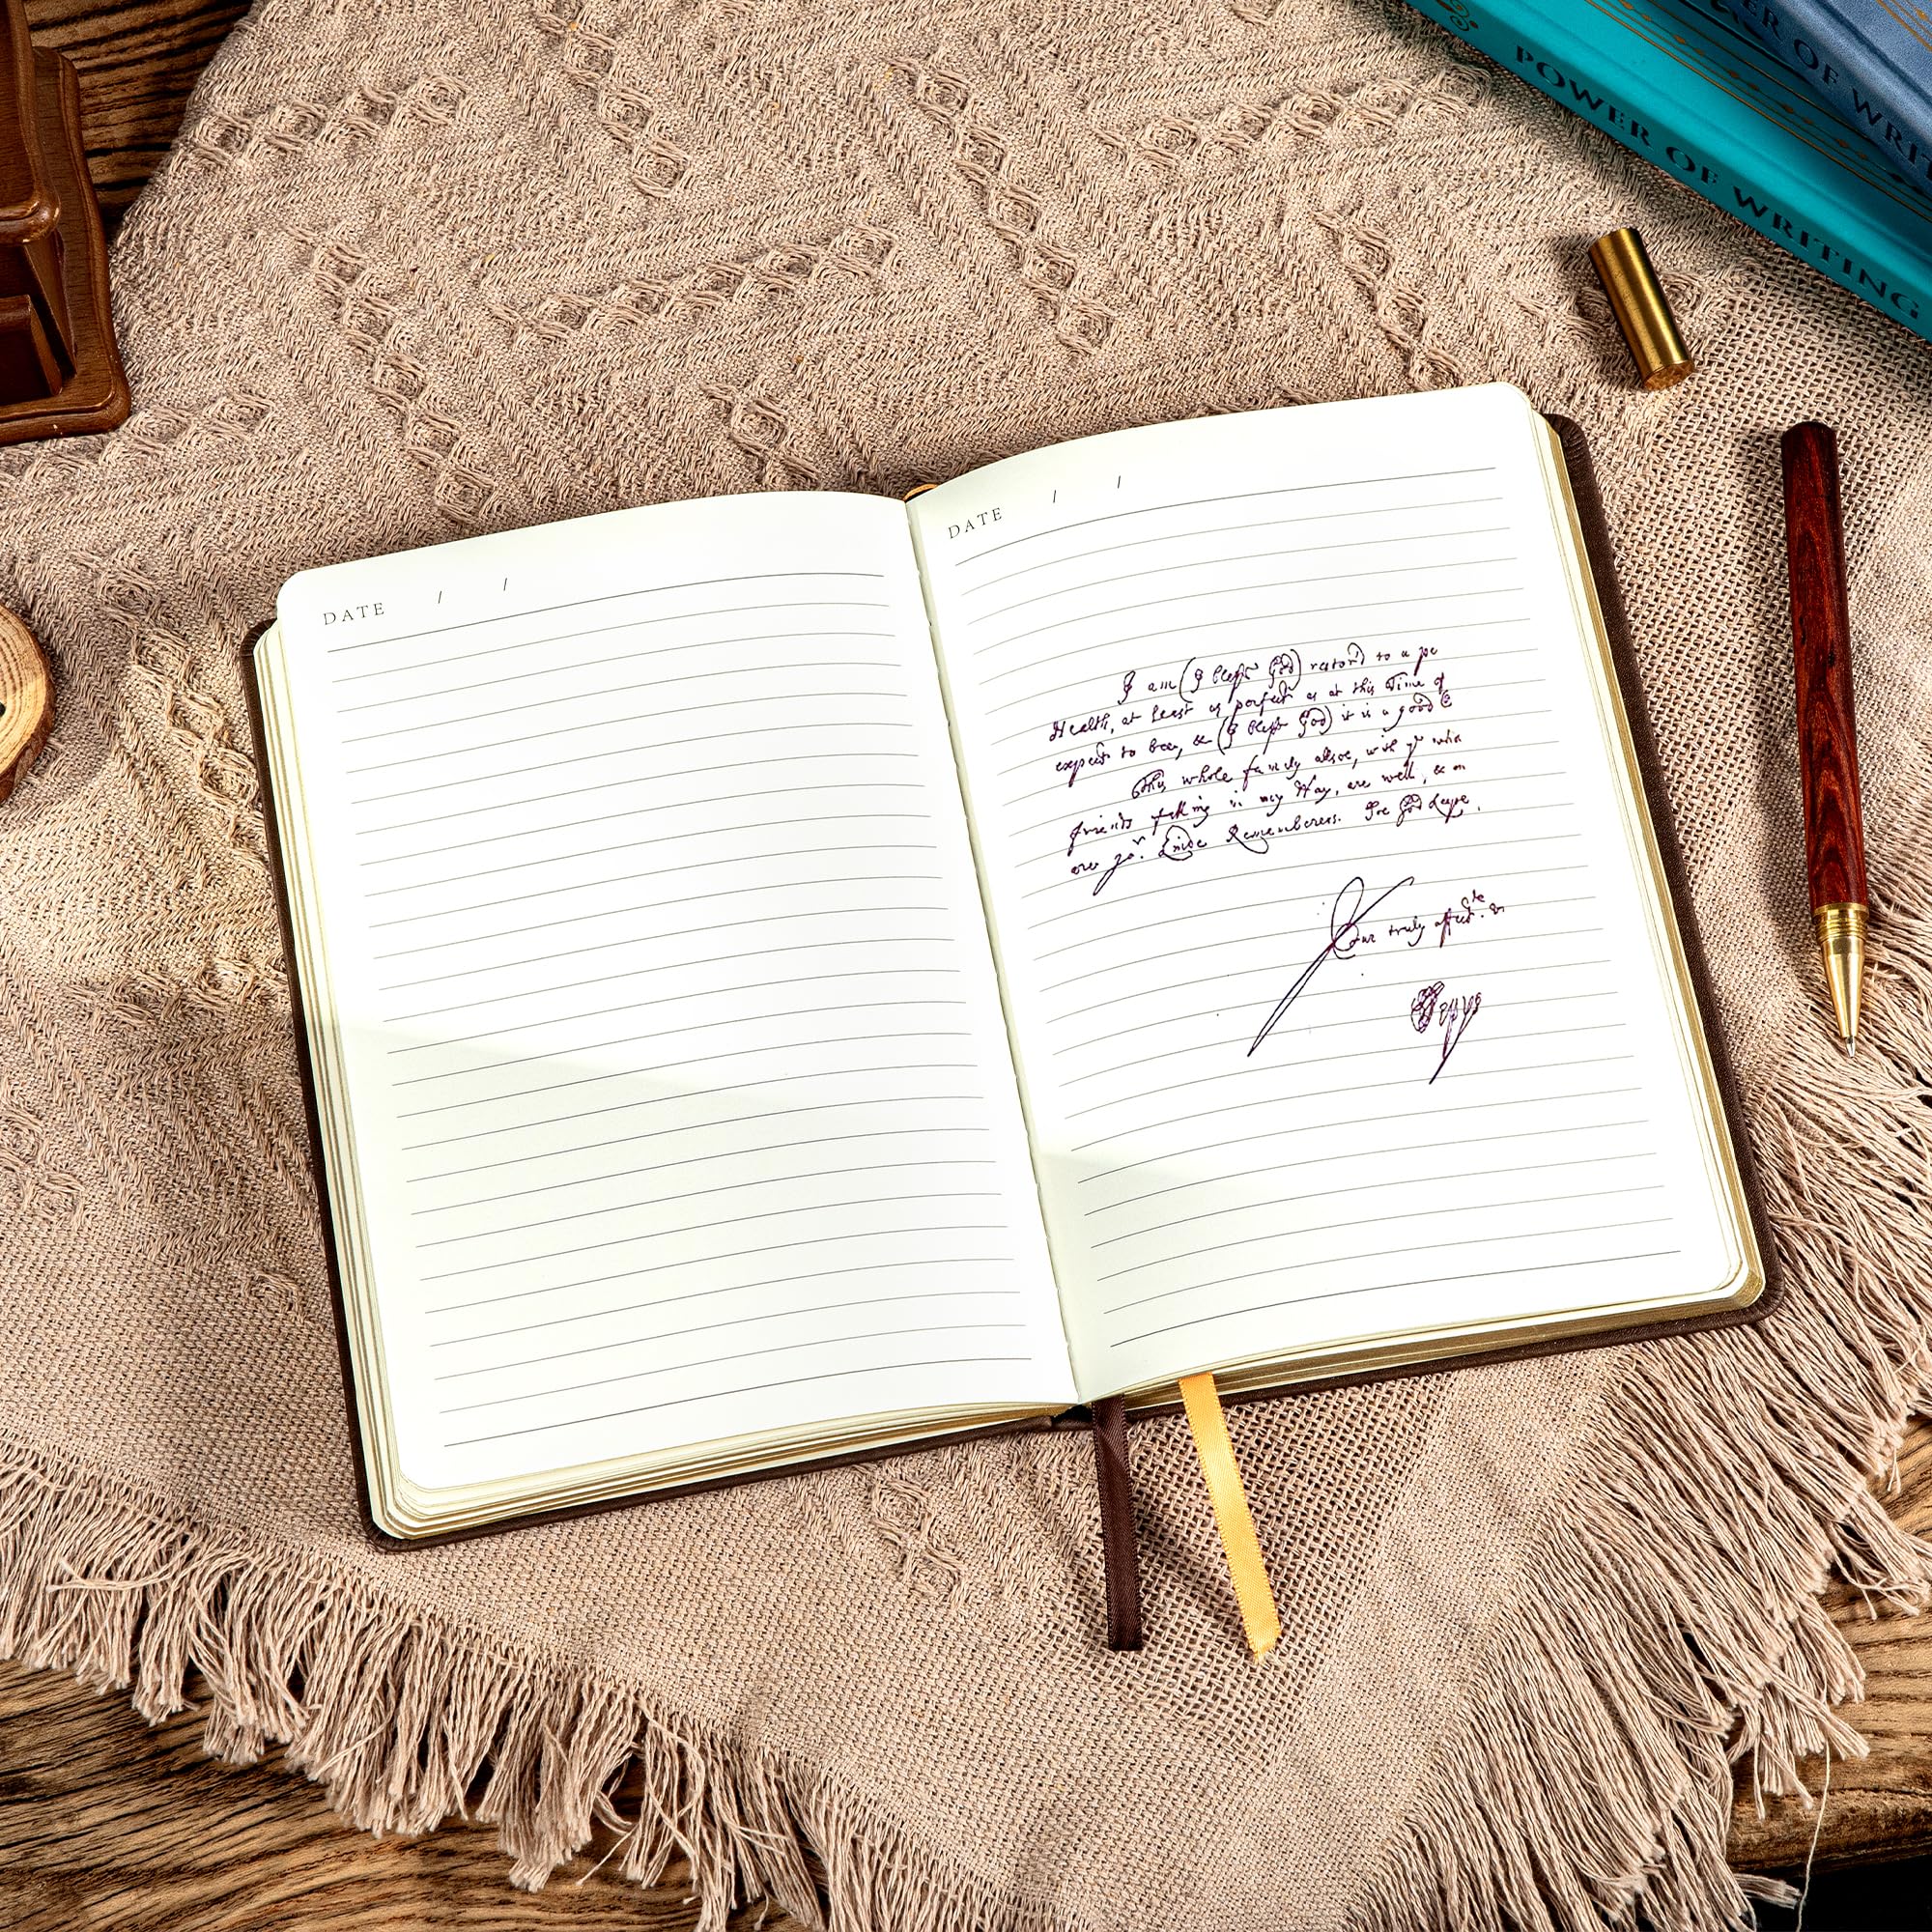 POWER OF WRITING
ER OF WRI
DATE / /
DATE / /
I am (I blesse God) restor'd to a pe
Health, at least as perfect as at this Time of
expect to bee, & (I blesse God) it is a good
This whole family alsoe, with yr who
friends in my Way, are well, & 
are yor. Kinde Rememberers. Soe God keepe
Your truly affectte. &
Pepys